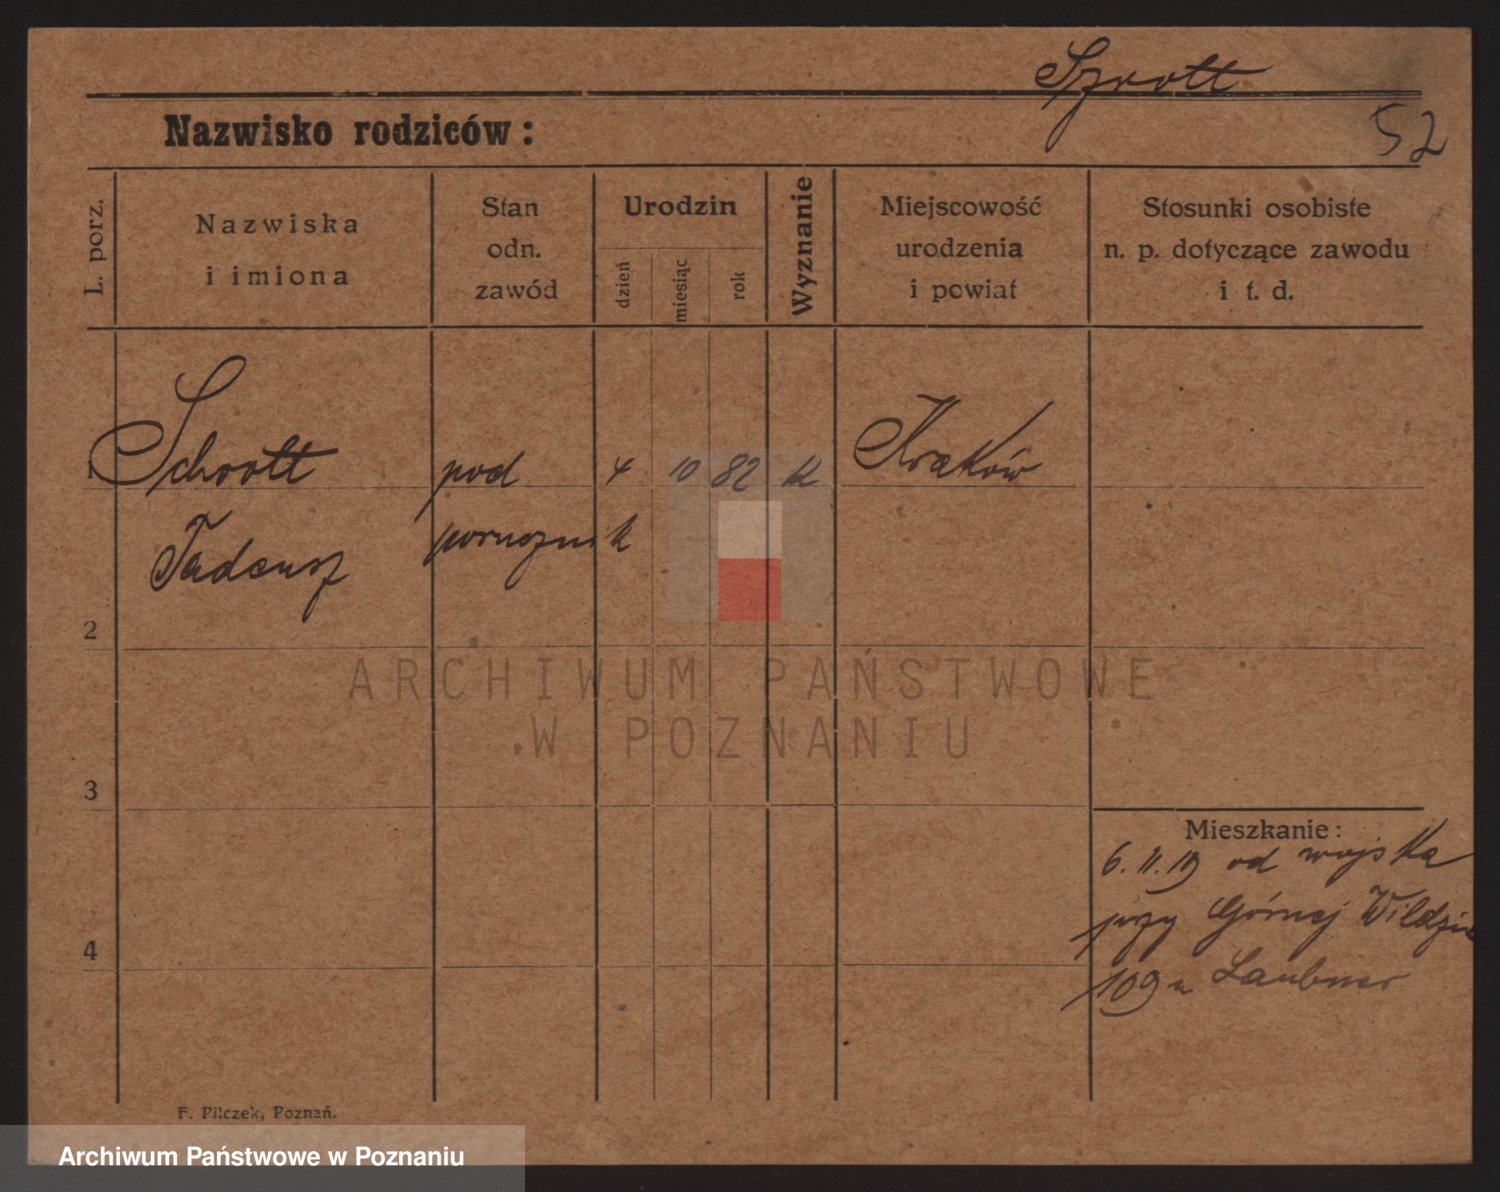 Szrott
52
Nazwisko rodziców:
L. porz.
Nazwiska
i imiona
Stan
odn.
zawód
Urodzin
dzień
miesiąc
rok
Wyznanie
Miejscowość
urodzenia
i powiat
Stosunki osobiste
n. p. dotyczące zawodu
i t. d.
1 Schrott pod 4 10 82 kt Kraków
Tadeusz porucznik
2
3
4
Mieszkanie:
6. 11. 19 od wojska
przy Górnej Wildzie
109 u Laubner
F. Pilczek, Poznań.
ARCHIWUM PAŃSTWOWE
W POZNANIU
Archiwum Państwowe w Poznaniu